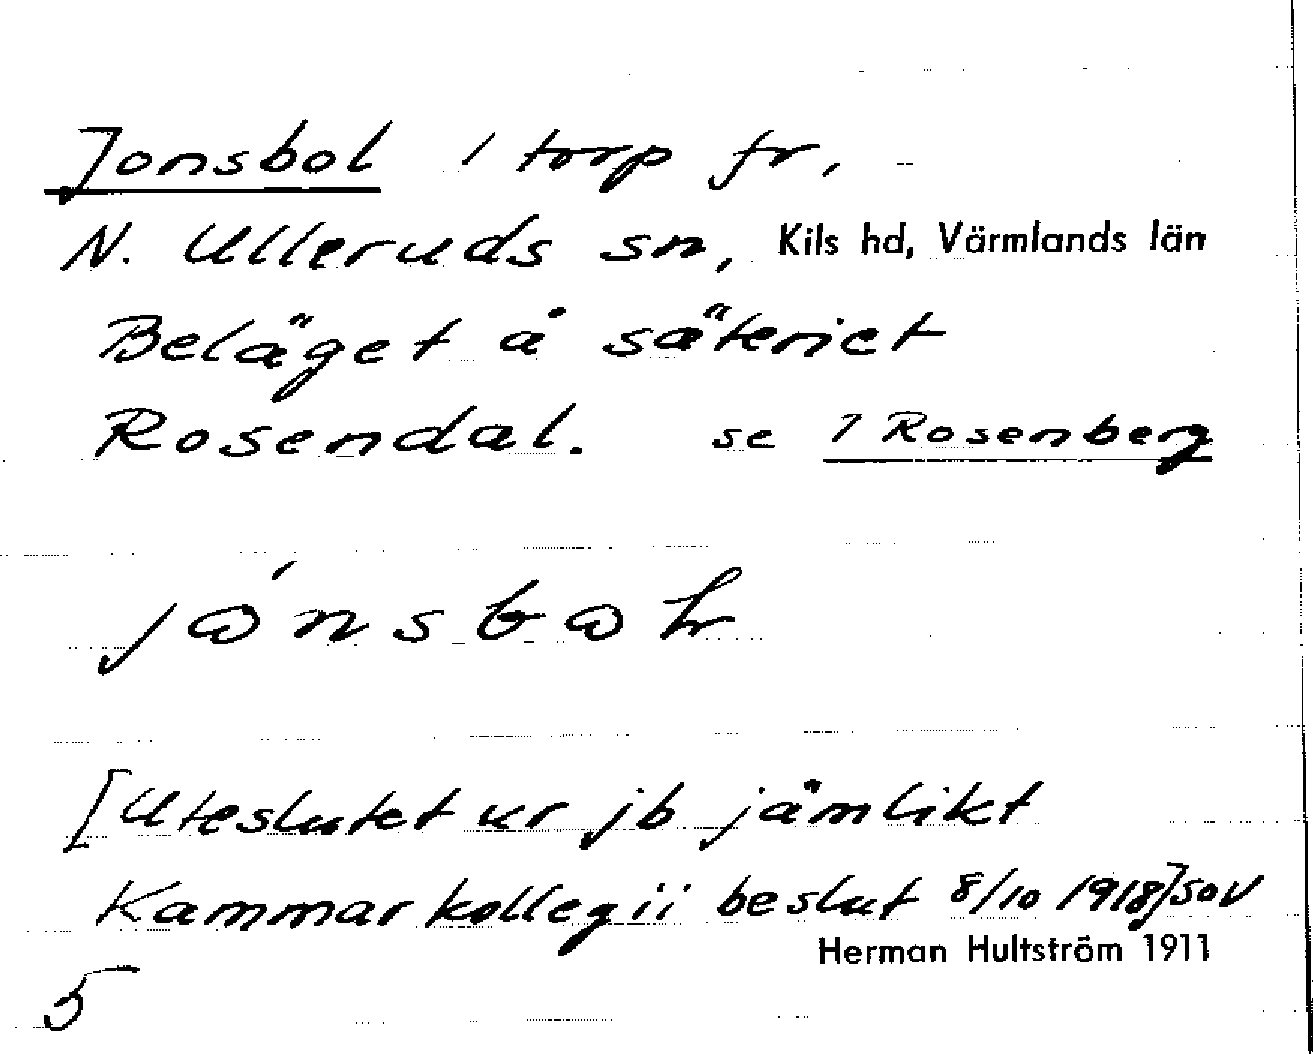 Jonsbol 1 torp fr,
N. Ulleruds sn, Kils hd, Värmlands län
Beläget å säteriet
Rosendal. se 1 Rosenberg
[Uteslutet ur jb jämlikt
Kammarkollegii beslut 8/10 1918] SOV
Herman Hultström 1911
5